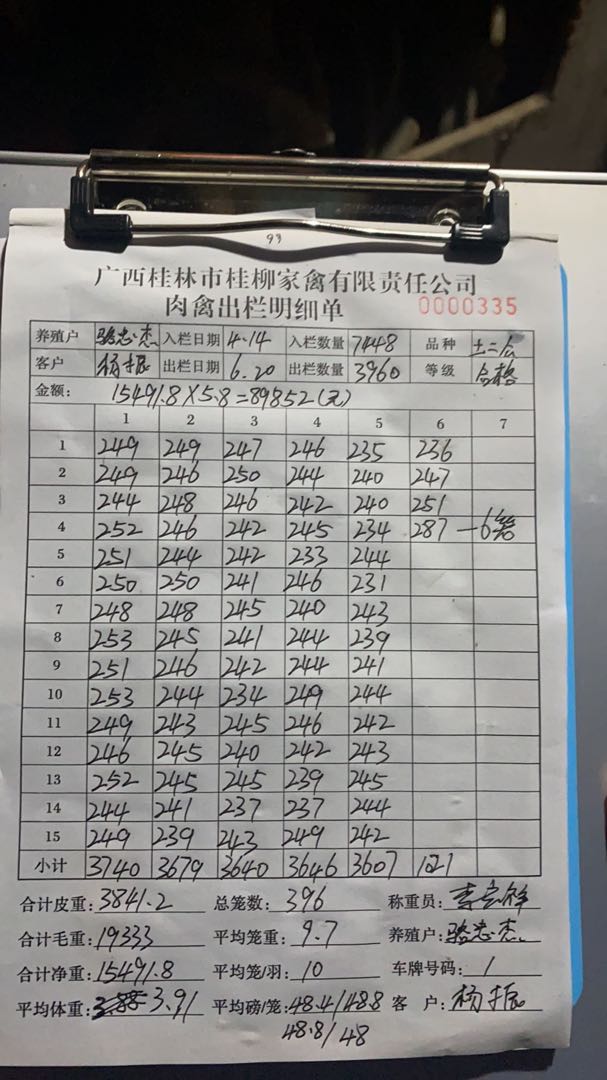 99
广西桂林市桂柳家禽有限责任公司
肉禽出栏明细单 0000335
养殖户 骆志杰 入栏日期 4.14 入栏数量 7448 品种 土二公
客户 杨振 出栏日期 6.20 出栏数量 3960 等级 合格
金额: 15491.8×5.8=89852(元)
1 2 3 4 5 6 7
1 249 249 247 246 235 236
2 249 246 250 244 240 247
3 244 248 246 242 240 251
4 252 246 242 245 234 287 — 6笼
5 251 244 242 233 244
6 250 250 241 246 231
7 248 248 245 240 243
8 253 245 241 244 239
9 251 246 242 244 241
10 253 244 234 249 244
11 249 243 245 246 242
12 246 245 240 242 243
13 252 245 245 239 245
14 244 241 237 237 244
15 249 239 243 249 242
小计 3740 3679 3640 3646 3607 1021
合计皮重: 3841.2 总笼数: 396 称重员:
合计毛重: 19333 平均笼重: 9.7 养殖户: 骆志杰
合计净重: 15491.8 平均笼/羽: 10 车牌号码: 1
平均体重: 3.91 平均磅/笼: 48.4/48.8 客 户: 杨振
48.8/48